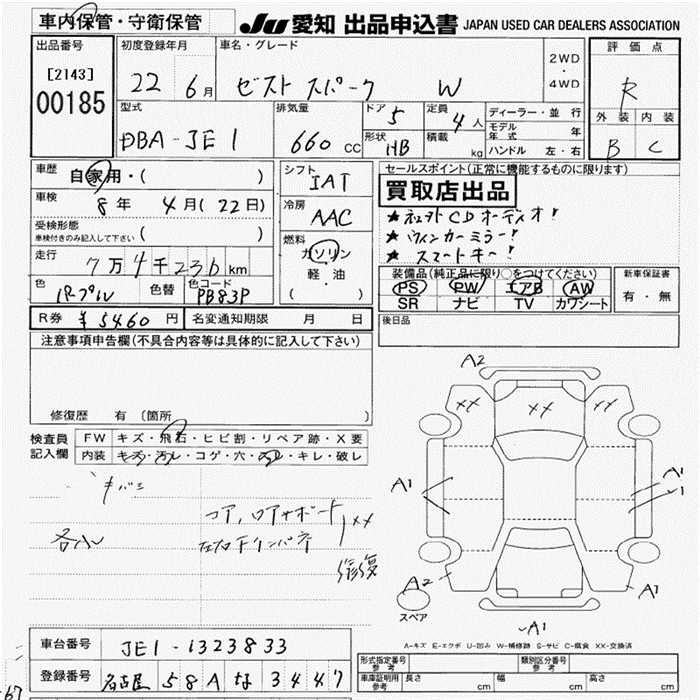 車内保管・守衛保管
JU 愛知 出品申込書 JAPAN USED CAR DEALERS ASSOCIATION
出品番号
[2143]
00185
初度登録年月
22 6月
車名・グレード
ゼスト スパーク W
2WD
・
4WD
評価点
R
外装 内装
B C
型式
DBA-JE1
排気量
660 CC
ドア
5
形状
HB
定員
4人
積載
kg
ディーラー・並行
モデル年式 年
ハンドル 左・右
車歴
自家用・( )
車検
8年 4月(22日)
受検形態
車検付きのみ記入して下さい( )
走行
7万4千236km
色
パープル
色替
色コード
PB83P
シフト
IAT
冷房
AAC
燃料
ガソリン
軽・油
( )
セールスポイント(正常に機能するものに限ります)
買取店出品
★ CDオーディオ!
★ ウィンカーミラー!
★ スマートキー!
装備品(純正品に限り○をつけてください)
PS PW エアB AW
SR ナビ TV カワシート
新車保証書
有・無
R券 ¥5460円
名変通知期限 月 日
後日品
注意事項申告欄(不具合内容等は具体的に記入して下さい)
修復歴 有 〔箇所 〕
検査員
記入欄
FW キズ・飛石・ヒビ割・リペア跡・X要
内装 キズ・汚レ・コゲ・穴・スレ・キレ・破レ
各小
コア,ロアサポート
左右Fインパネ
XX
修復
A2
XX XX XX
A1 A1
A2 A1
A1
スペア
A-キズ E-エクボ U-凹み W-補修跡 S-サビ C-腐食 XX-交換済
車台番号 JE1-1323833
登録番号 名古屋 58A な 3447
型式指定番号 参考
類別区分番号 参考
車庫証明用 参考 長さ cm 幅 cm 高さ cm